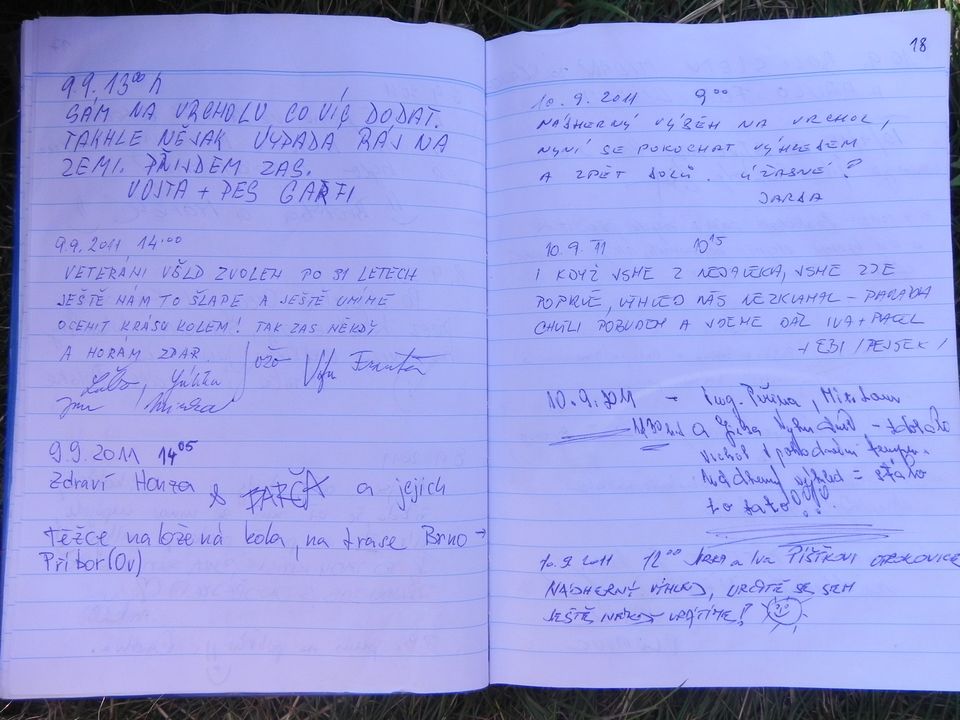 9.9. 13⁰⁰ h
SÁM NA VRCHOLU CO VÍC DODAT.
TAKHLE NĚJAK VYPADA RÁJ NA
ZEMI. PŘIJDEM ZAS.
VOJTA + PES GARFI
9.9.2011 14:00
VETERÁNI VŠLD ZVOLEN PO 31 LETECH
JEŠTĚ NÁM TO ŠLAPE A JEŠTĚ UMÍME
OCENIT KRÁSU KOLEM! TAK ZAS NĚKDY
A HORÁM ZDAR.
9.9.2011 14⁰⁵
Zdraví Honza & PAPČA a jejich
těžce naložená kola, na trase Brno →
Příbor (Ov)
18
10.9.2011 9⁰⁰
NÁDHERNÝ VÝBĚH NA VRCHOL,
NYNÍ SE POKOCHAT VÝHLEDEM
A ZPĚT DOLŮ. ÚŽASNÉ!
JARDA
10.9.11 10¹⁵
I KDYŽ JSME Z NEDALEKA, JSME ZDE
POPRVÉ, VÝHLED NÁS NEZKLAMAL -
CHVÍLI POBUDEM A JDEME DÁL IVA + PAVEL
+ EBI /PEJSEK/
10.9.2011 - Ing. Milan
a Jirka -
vrchol v pohodovém tempu.
Nádherný výhled = stálo
to za to!!!
10.9.2011 12⁰⁰ a Iva PIŠTKOVI OTROKOVICE
NÁDHERNÝ VÝHLED, URČITĚ SE SEM
JEŠTĚ NĚKDY VRÁTÍME!